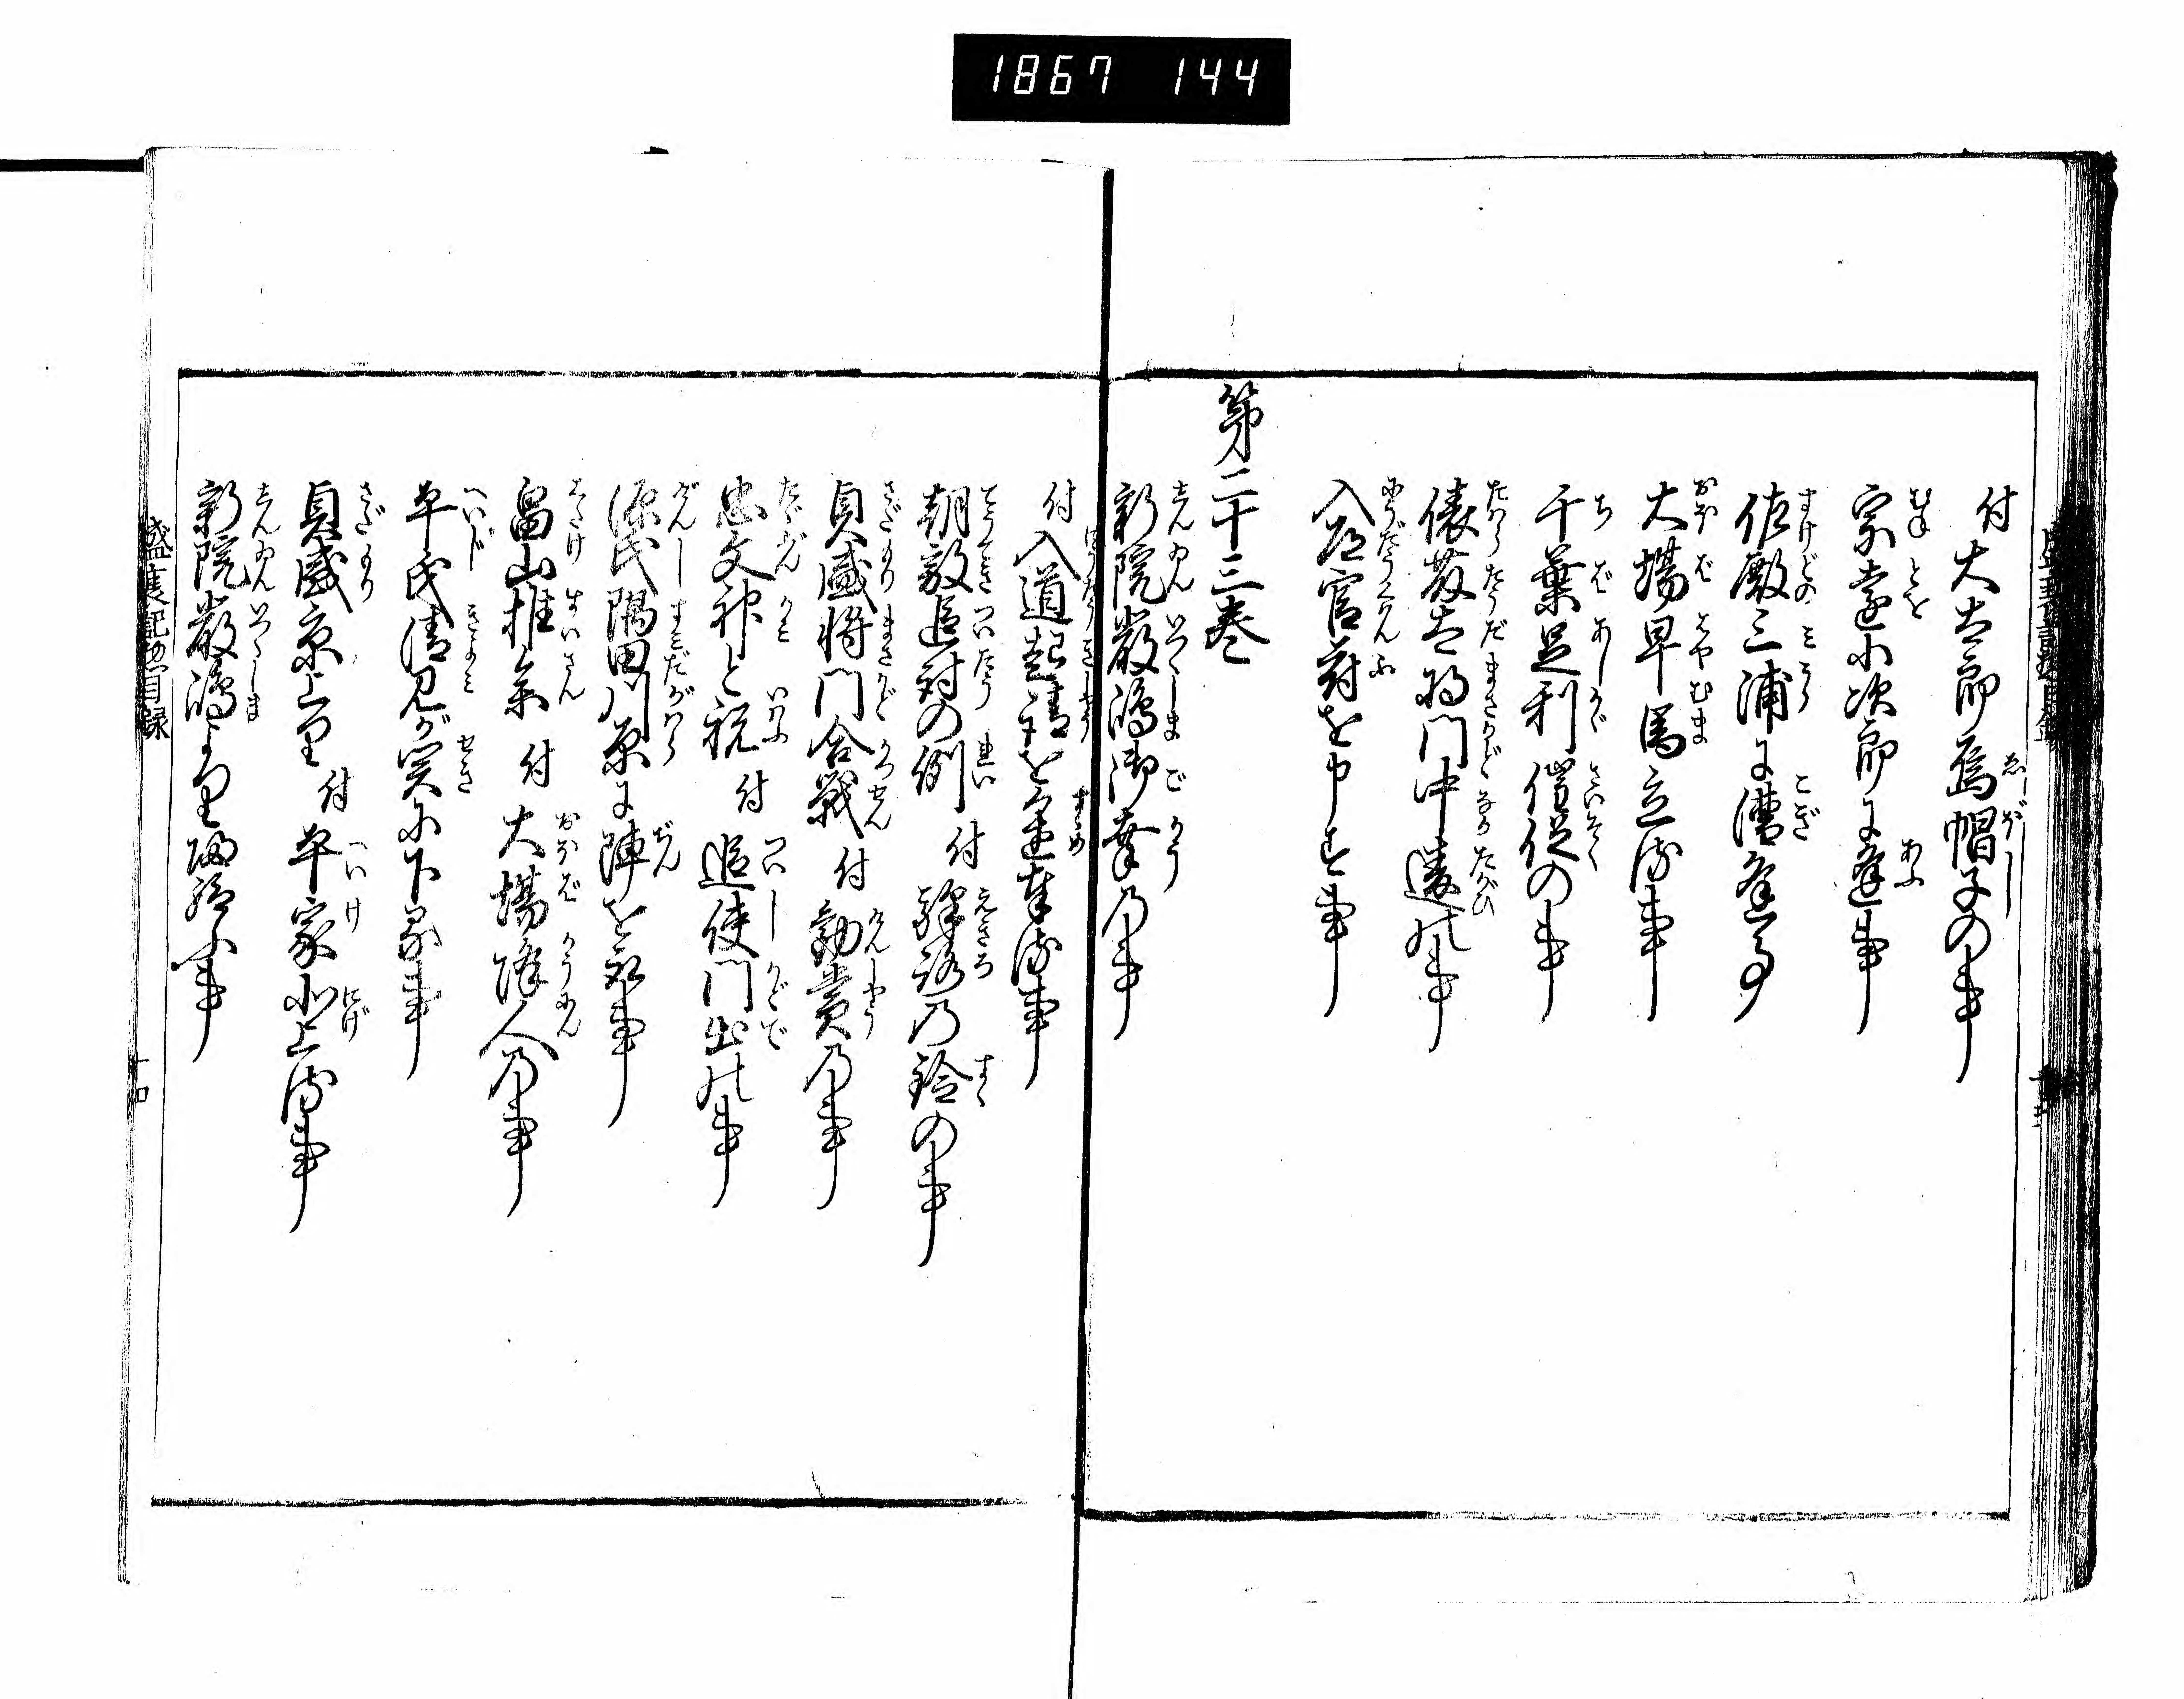 1867 144
付大太郎烏帽子の事
宗遠小次郎に逢事
佐殿三浦に漕逢事
大場早馬立る事
千葉足利催促の事
俵藤太将門中違の事
入道官符を申す事
第二十三巻
新院厳島御幸乃事
付入道起請をすゝめ奉る事
朝敵追討の例 付 駅路乃鈴の事
貞盛将門合戦 付 勧賞乃事
忠文神と祝 付 追使門出の事
源氏隅田川原に陣を取事
畠山推参 付 大場降人乃事
平氏清見が関に下る事
貞盛京上り 付 平家逃上る事
新院厳島より還給ふ事
盛衰記惣目録